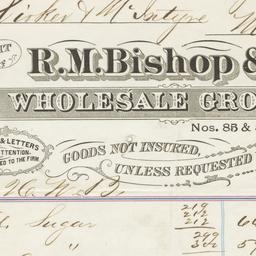 & McIntyre
R.M.Bishop &
WHOLESALE GRO
Nos. 85 &
& LETTERS
TTENTION.
ED TO THE FIRM
GOODS NOT INSURED,
UNLESS REQUESTED
Sugar
219
212
212
249